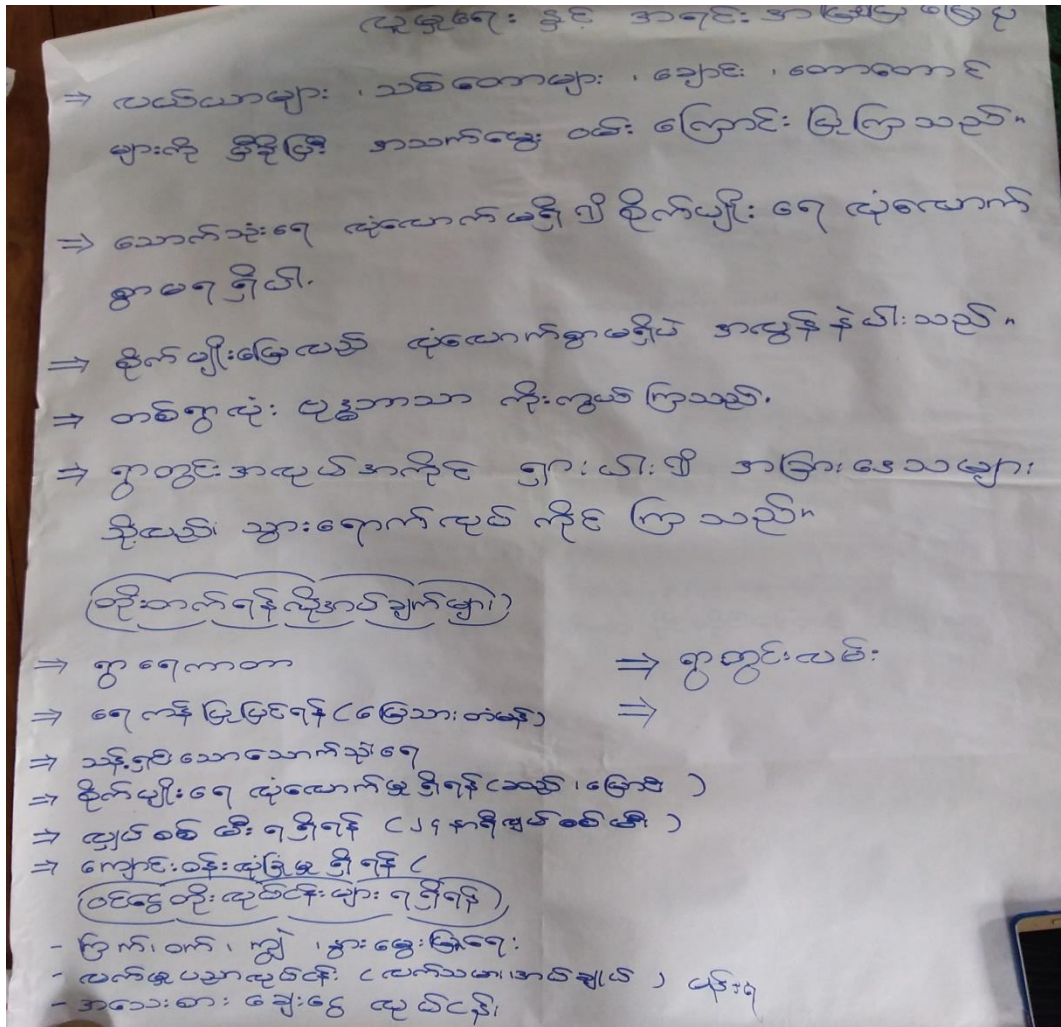 လူမှုရေး နှင့် အရင်းအမြစ်ပြ မြေပုံ
⇒ လယ်ယာများ ၊ သစ်တောများ ၊ ချောင်း ၊ တောတောင်
များကို မှီခိုပြီး အသက်မွေး ဝမ်း ကြောင်း ပြုကြသည်။
⇒ သောက်သုံးရေ လုံလောက်မရှိ ၍ စိုက်ပျိုး ရေ လုံလောက်
စွာမရ ရှိပါ.
⇒ စိုက်ပျိုးမြေလည်း လုံလောက်စွာမရှိပဲ အလွန်နဲပါးသည်။
⇒ တစ်ရွာလုံး ဗုဒ္ဓဘာသာ ကိုးကွယ်ကြသည်.
⇒ ရွာတွင်းအလုပ်အကိုင် ရှားပါး၍ အခြားဒေသများ
သို့လည်း သွားရောက်လုပ် ကိုင် ကြသည်။
(တိုးတက်ရန်လိုအပ်ချက်များ)
⇒ ရွာ ရေကာတာ
⇒ ရွာတွင်းလမ်း
⇒ ရေကန်ပြုပြင်ရန် (မြေသားတံမံ)
⇒
⇒ သန့်ရှင်းသောသောက်သုံးရေ
⇒ စိုက်ပျိုးရေ လုံလောက်မှုရှိရန် (ဆည်၊မြောင်း )
⇒ လျှပ်စစ်မီး ရရှိရန် (၂၄ နာရီလျှပ်စစ်မီး )
⇒ ကျောင်းဝန်းလုံခြုံမှု ရှိရန် (
(ဝင်ငွေတိုးလုပ်ငန်းများ ရရှိရန်)
- ကြက်၊ ဝက်၊ ကျွဲ ၊နွားမွေးမြူရေး
- လက်မှုပညာလုပ်ငန်း (လက်သမား၊အပ်ချုပ် ) ပန်းရံ
- အသေးစား ချေးငွေ လုပ်ငန်း